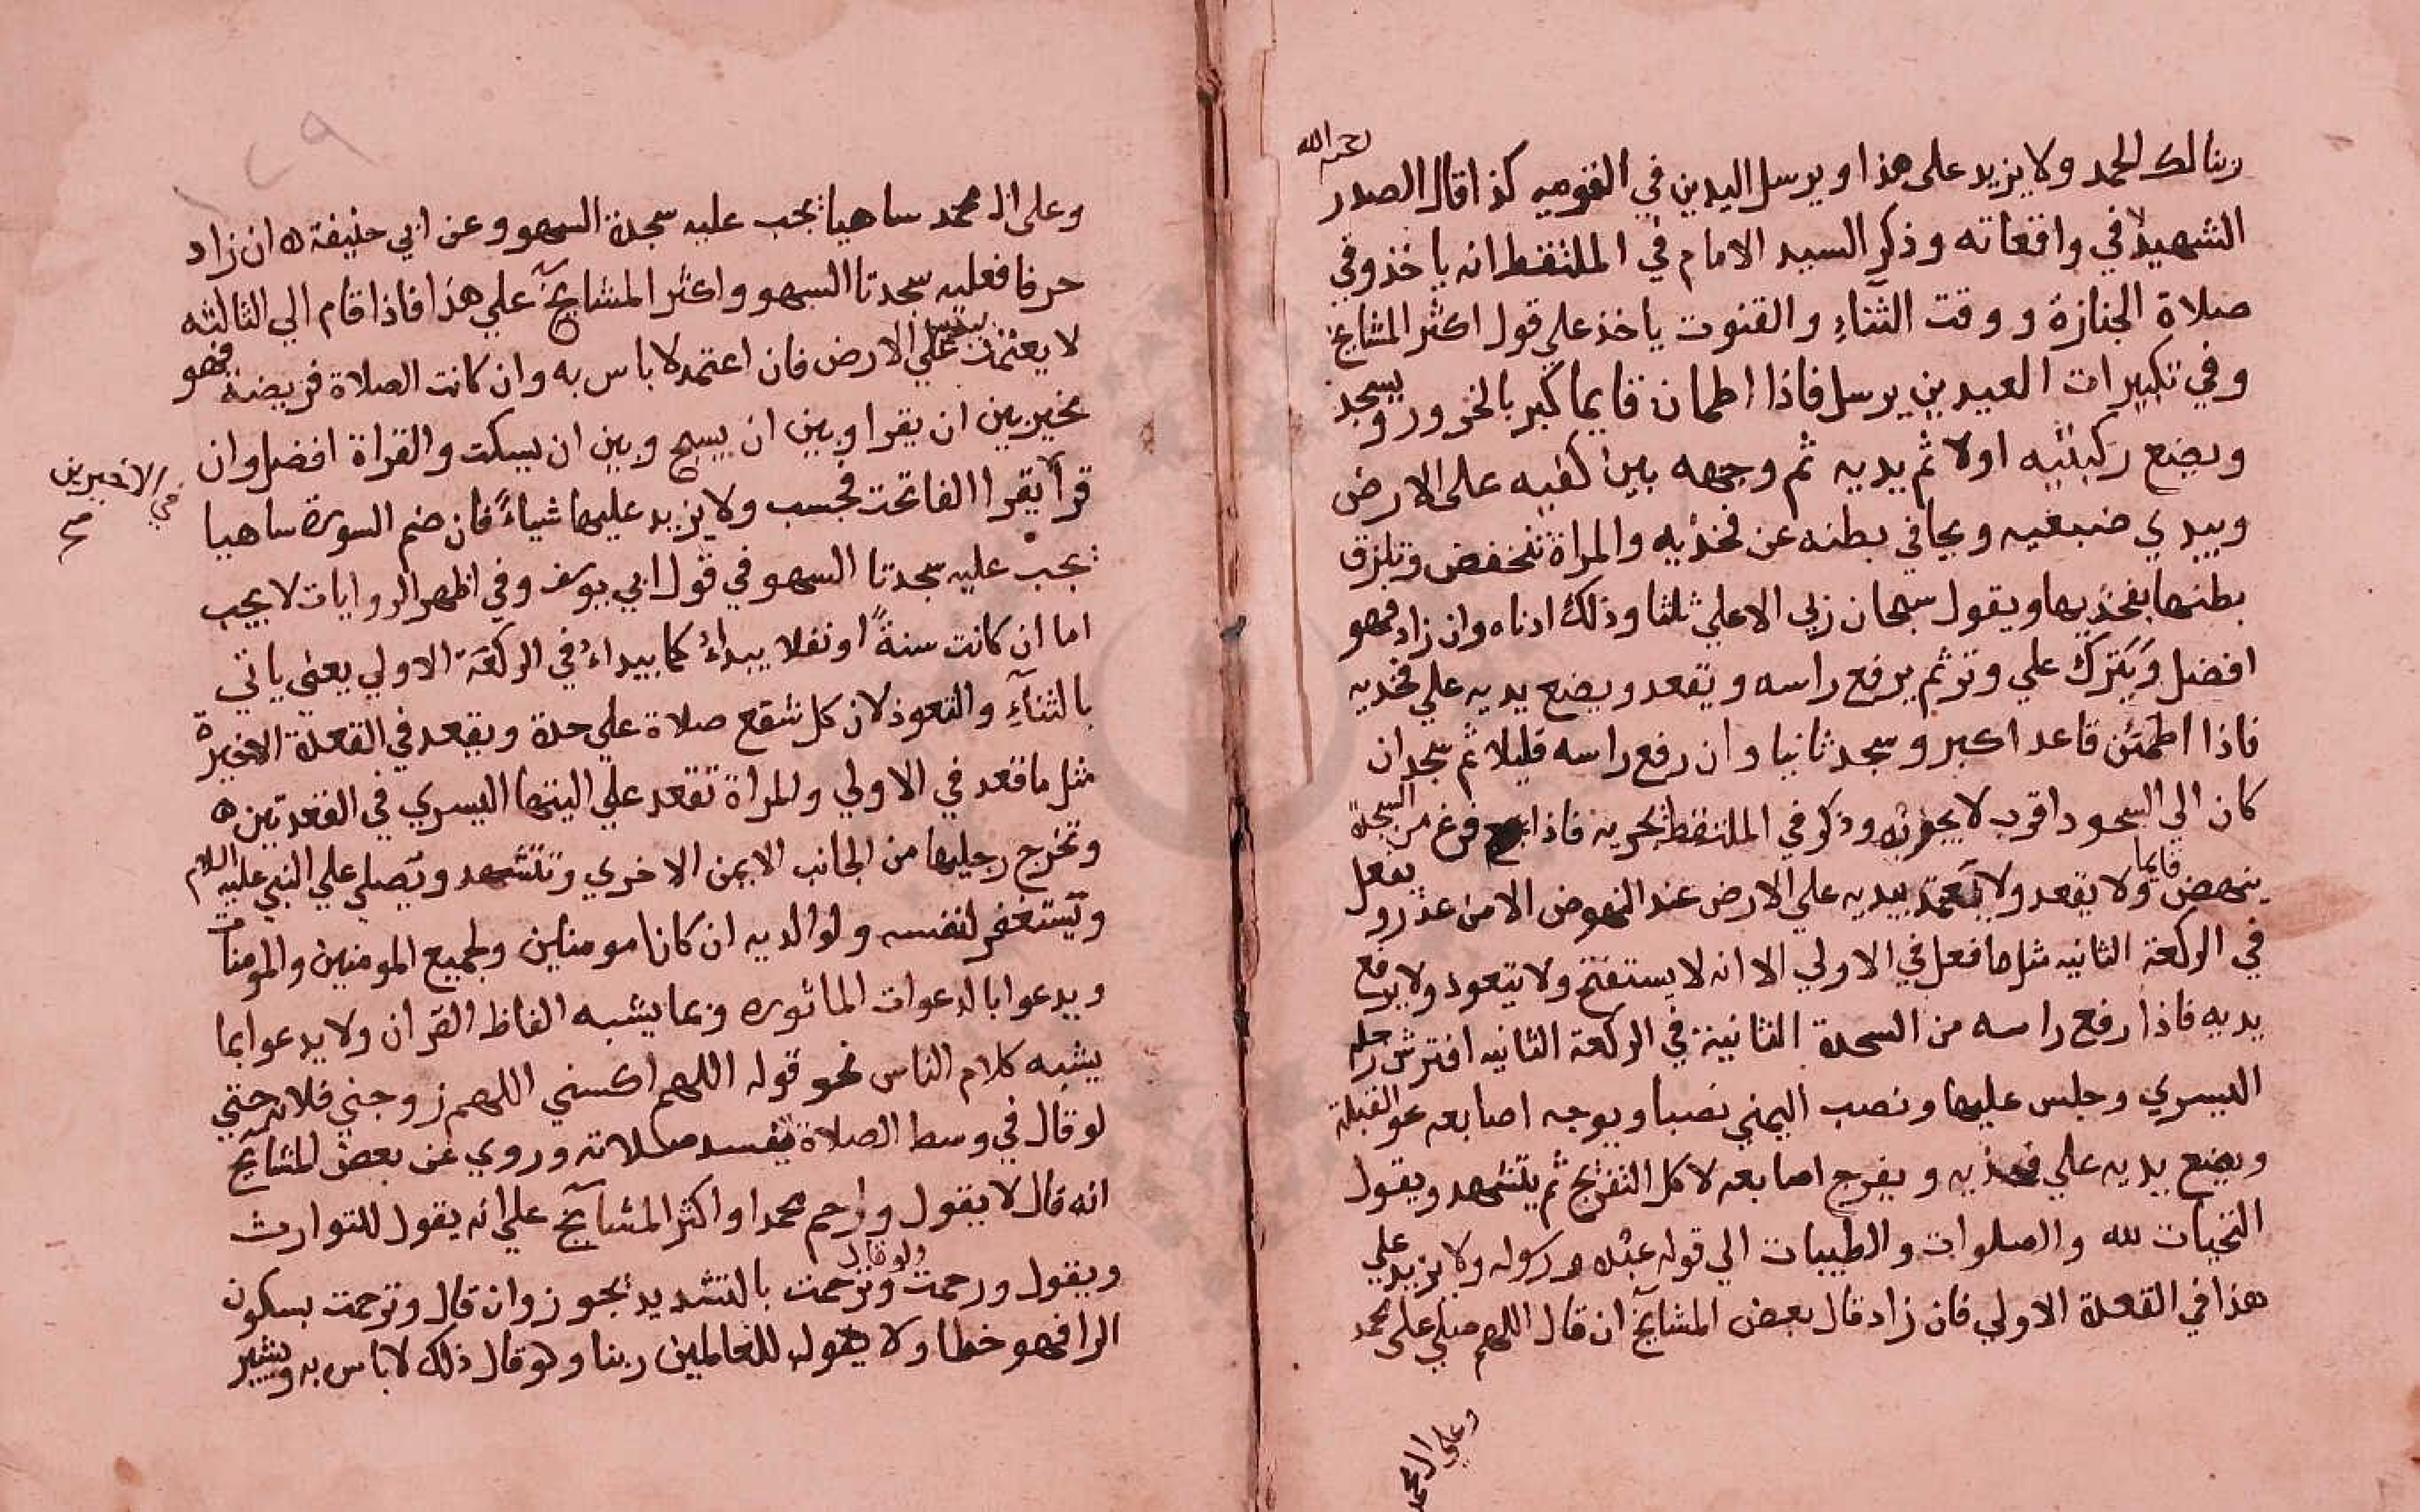 ربنا لك الحمد ولا يزيد على هذا ويرسل اليدين في القوميه كذا قال الصدر
رحمه الله
الشهيد في واقعاته وذكر السيد الامام في الملتقط انه ياخذ وفي
صلاة الجنازة ووقت الثناء والقنوت ياخذ علي قول اكثر المشايخ
وفي تكبيرات العيدين يرسل فاذا اطمان قايما كبر بالخرور ويسجد
ويضع ركبتيه اولا ثم يديه ثم وجهه بين كفيه على الارض
ويبدي ضبعيه ويجافي بطنه عن فخذيه والمراة تنخفض وتلزق
بطنها بفخذيها ويقول سبحان ربي الاعلي ثلثا وذلك ادناه وان زاد فهو
افضل ويترك علي وتر ثم يرفع راسه ويقعد ويضع يديه علي فخذيه
فاذا اطمئن قاعدا كبر وسجد ثانيا وان رفع راسه قليلا ثم سجد ان
كان الي السجود اقرب لا يجوز وذكر في الملتقط يجزيه فاذا فرغ من السجدة
ينهض قايما ولا يقعد ولا يعتمد بيديه علي الارض عند النهوض الا من عذر ويفعل
في الركعة الثانيه مثل ما فعل في الاولي الا انه لا يستفتح ولا يتعوذ ولا يرفع
يديه فاذا رفع راسه من السجدة الثانية في الركعة الثانيه افترش رجله
اليسري وجلس عليها ونصب اليمني نصبا ويوجه اصابعه نحو القبلة
ويضع يديه علي فخذيه ويفرج اصابعه لا كل التفريج ثم يتشهد ويقول
التحيات لله والصلوات والطيبات الي قوله عبده ورسوله ولا يزيد علي
هذا في القعدة الاولي فان زاد قال بعض المشايخ ان قال اللهم صلي على محمد
وعلي ال محمد
وعلى ال محمد ساهيا يجب عليه سجدة السهو وعن ابي حنيفة ان زاد
حرفا فعليه سجدتا السهو واكثر المشايخ علي هذا فاذا قام الي الثالثه
لا يعتمد علي الارض فان اعتمد لا باس به وان كانت الصلاة فريضة فهو
مخير بين ان يقرا وبين ان يسبح وبين ان يسكت والقراة افضل وان
في الاخيرين صح
قرا يقرا الفاتحت فحسب ولا يزيد عليها شياء فان ضم السورة ساهيا
يجب عليه سجدتا السهو في قول ابي يوسف وفي اظهر الروايات لا يجب
اما ان كانت سنة او نفلا يبداء كما يبداء في الركعة الاولي يعنى ياتي
بالثناء والتعوذ لان كل شفع صلاة علي حدة ويقعد في القعدة الاخيرة
مثل ما قعد في الاولي والمراة تقعد علي اليتها اليسري في القعدتين
وتخرج رجليها من الجانب الايمن الاخري وتتشهد وتصلي علي النبي عليه السلام
ويستغفر لنفسه ولوالديه ان كانا مومنين ولجميع المومنين والمومنات
ويدعوا بالدعوات الماثوره وبما يشبه الفاظ القران ولا يدعوا بما
يشبه كلام الناس نحو قوله اللهم اكسني اللهم زوجني فلانة حتي
لو قال في وسط الصلاة يفسد صلاته وروي عن بعض المشايخ
انه قال لا يقول وارحم محمدا واكثر المشايخ علي انه يقول للتوارث
ويقول ورحمت ولو قال وترحمت بالتشديد يجوز وان قال وترحمت بسكون
الرا فهو خطا ولا يقول للعالمين ربنا ولو قال ذلك لا باس به ويشير